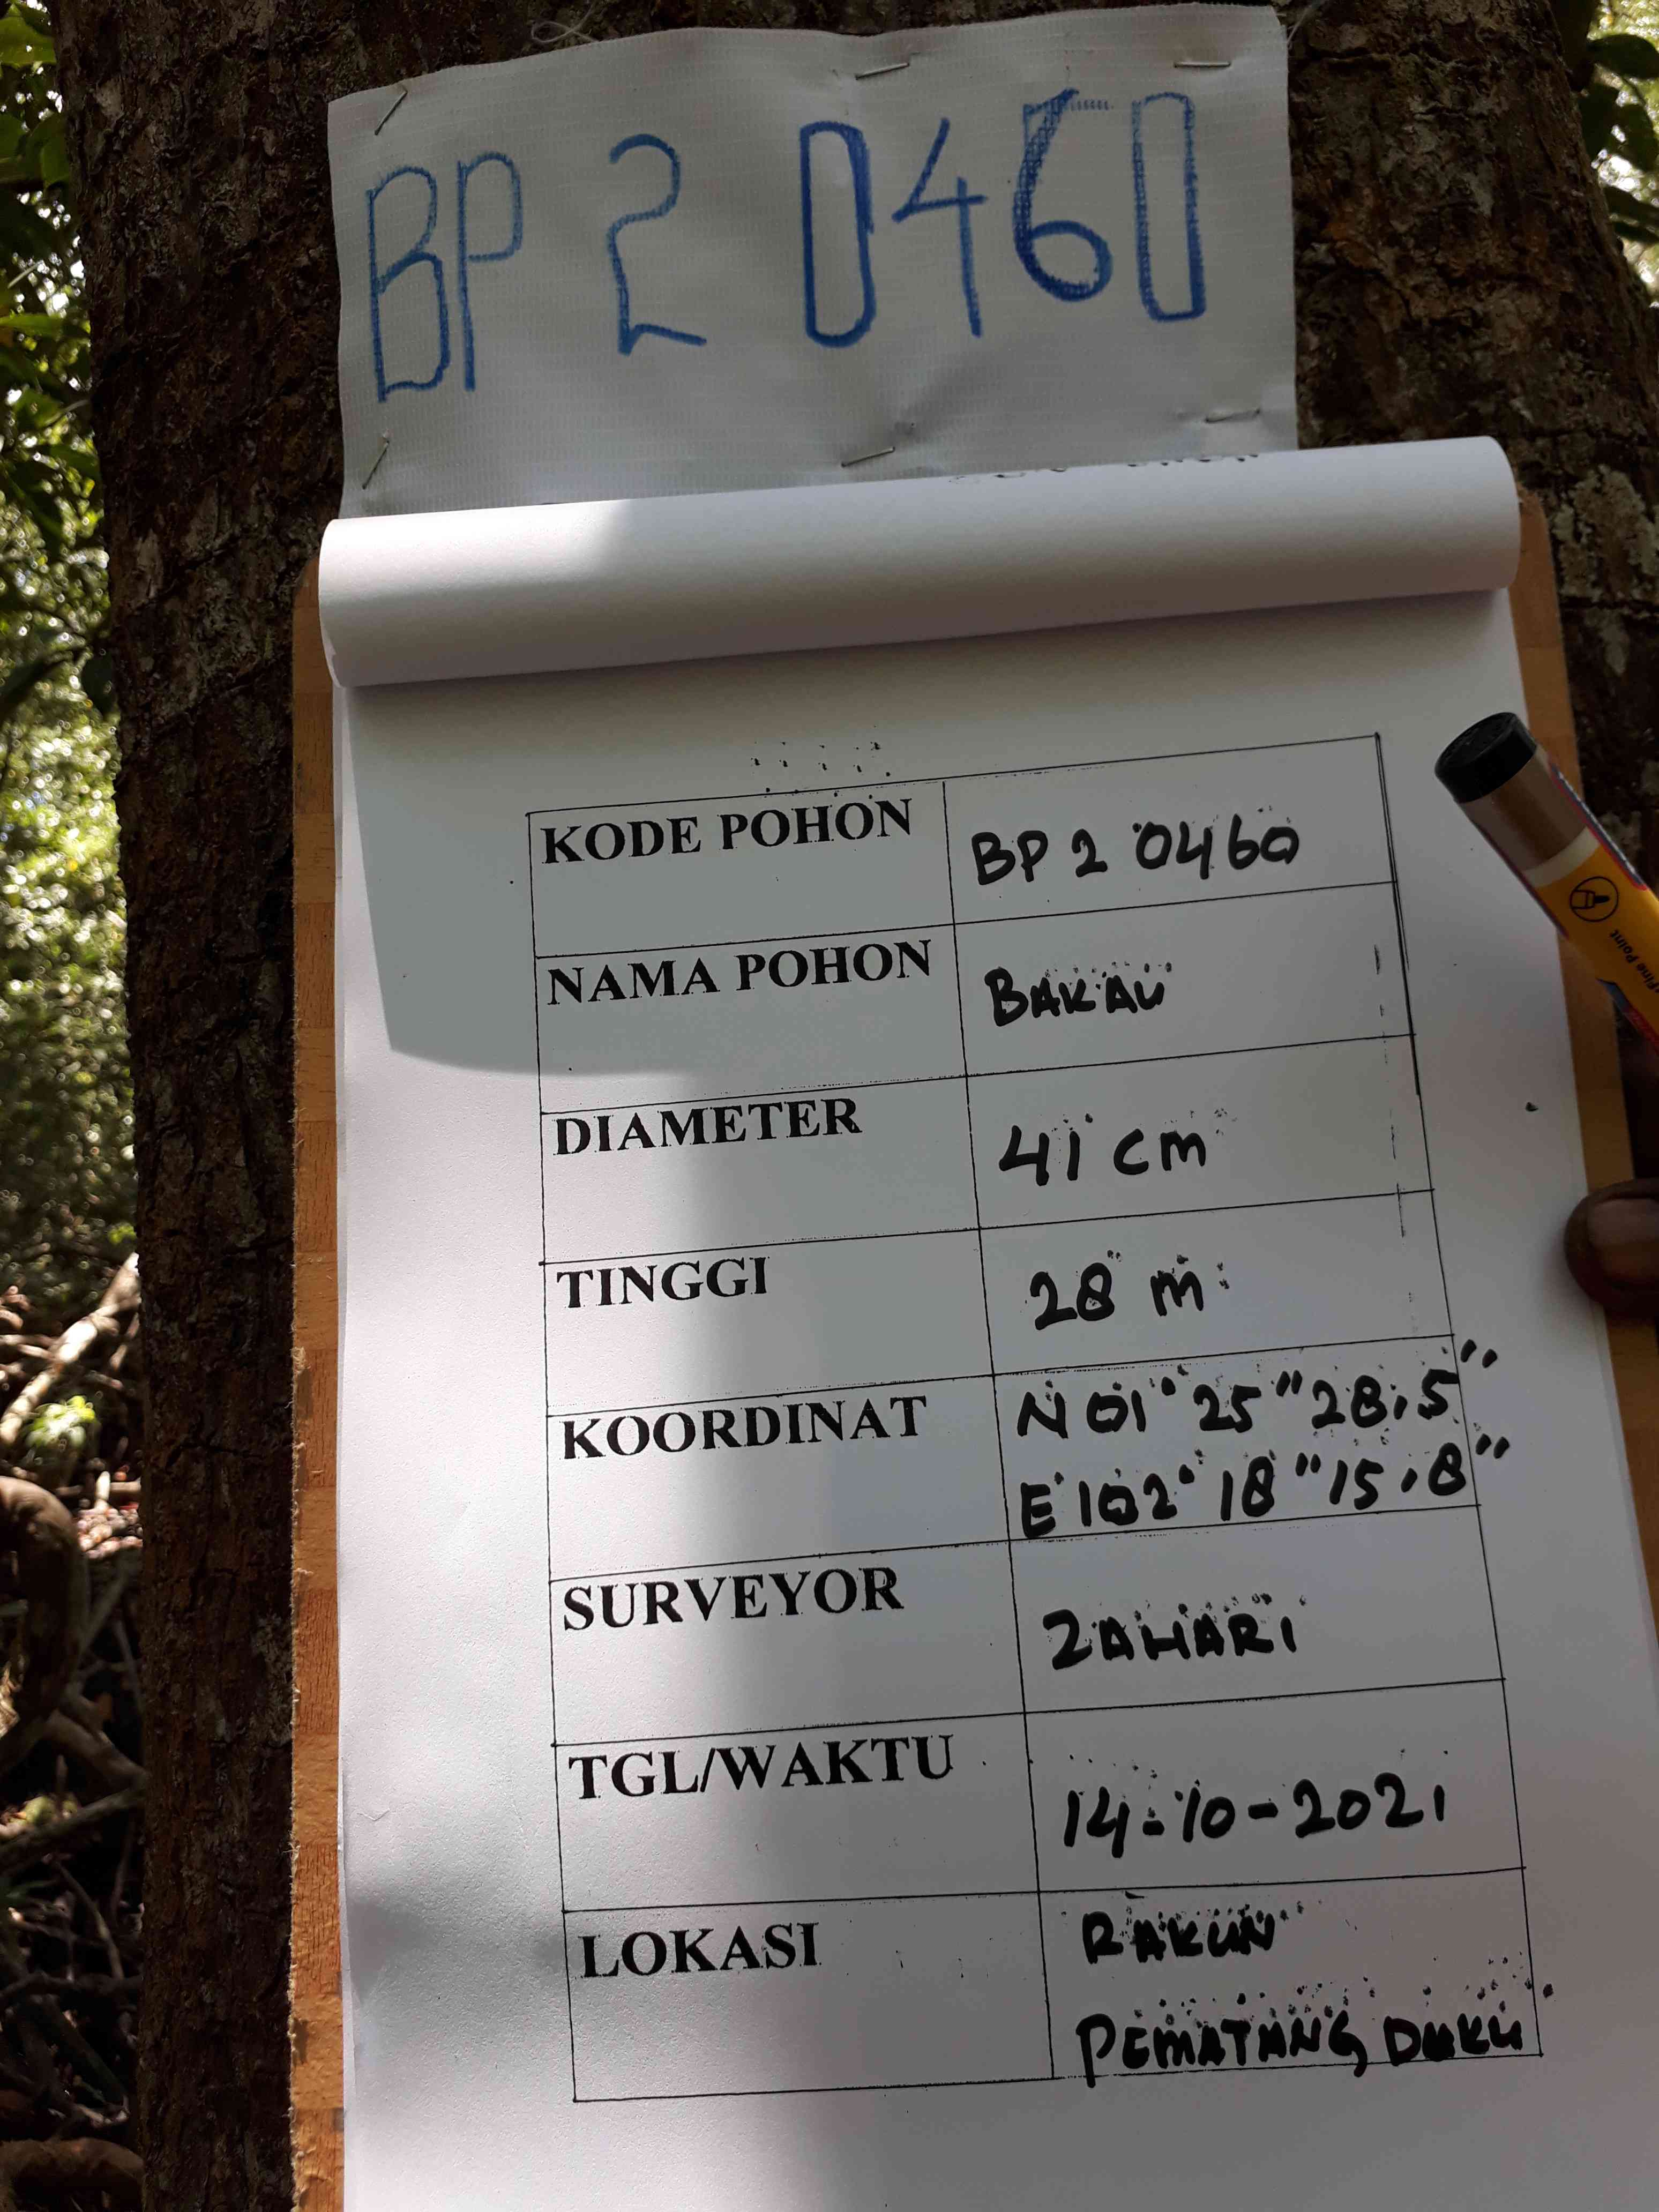 BP 2 0460
KODE POHON BP 2 0460
NAMA POHON BAKAU
DIAMETER 41 cm
TINGGI 28 m
KOORDINAT N 01° 25" 28,5"
E 102° 18" 15,8"
SURVEYOR ZAHARI
TGL/WAKTU 14-10-2021
LOKASI RAKUN
PEMATANG DUKU
Fine Point